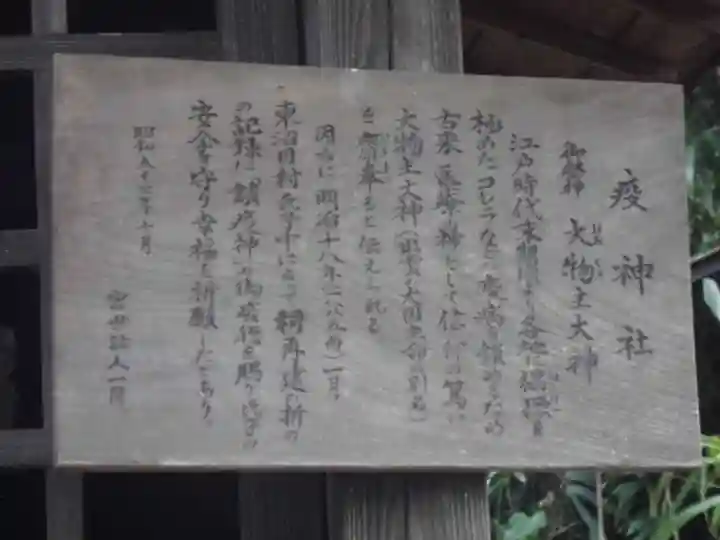 疫神社
御祭神 大物主大神
江戸時代末期より各地に猖獗を
極めたコレラなどの疫病を鎮めるため
古来医薬の神として信仰の篤い
大物主大神(出雲の大国主命の別名)
を祭奉ると伝えられる
因みに明治十八年(一八八五)一月。
東沼田村 によって祠再建の折の
の記録に「鎮疫神」の御
安全を守り幸福を祈願したとあり。
昭和五十 年十月
宮世話人一同